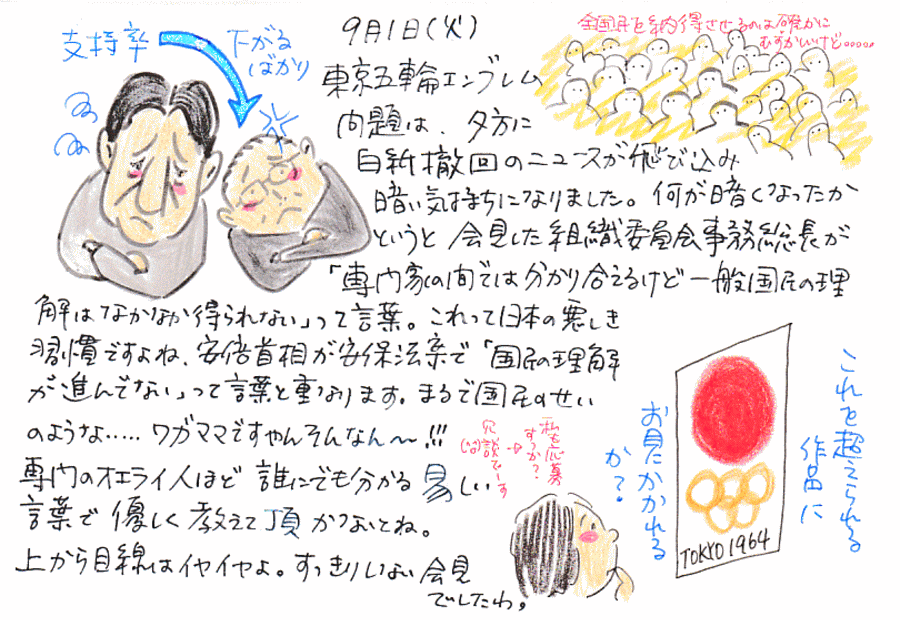 支持率
下がる
ばかり
9月1日(火)
全国民を納得させるのは確かに
むずかしいけど……
東京五輪エンブレム
問題は、夕方に
白紙撤回のニュースが飛び込み
暗い気持ちになりました。何が暗くなったか
というと 会見した組織委員会事務総長が
「専門家の間では分かり合えるけど一般国民の理
解はなかなか得られない」って言葉。これって日本の悪しき
習慣ですよね、安倍首相が安保法案で「国民の理解
が進んでない」って言葉と重なります。まるで国民のせい
のような…‥ ワガママですやんそんなん〜!!!
専門のオエライ人ほど 誰にでも分かる 易しい
言葉で 優しく教えて頂かないとね。
上から目線はイヤイヤよ。すっきりしない会見
でしたわ。
私も応募
すっか?
冗談でーす
(笑)
これを超えられる
作品に
お目にかかれる
か?
TOKYO 1964